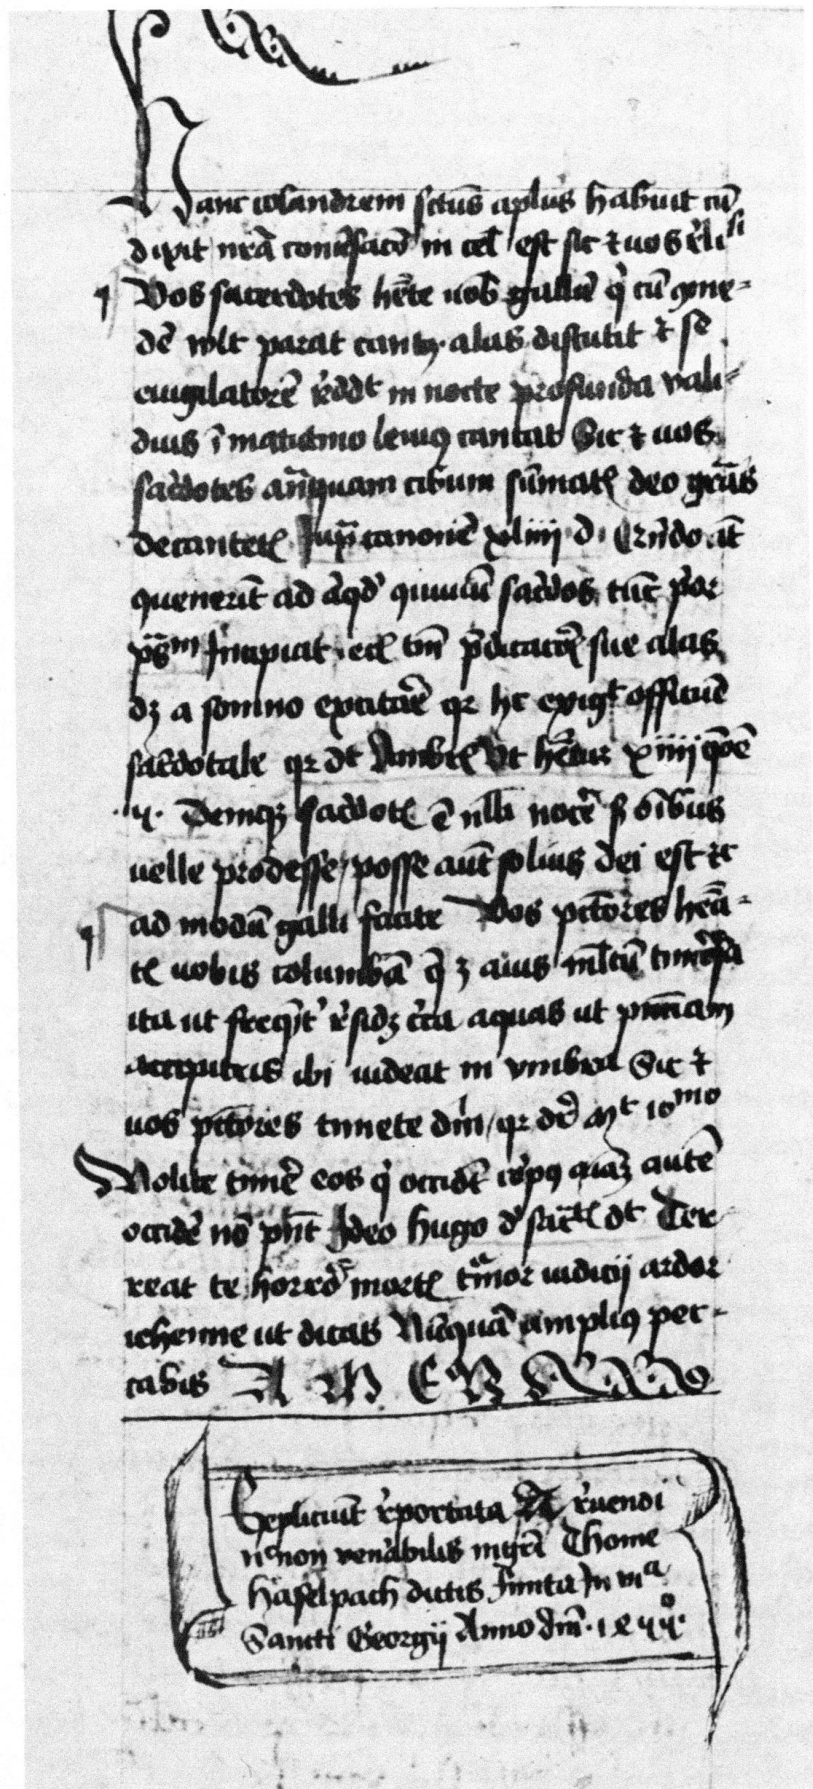 Hanc volandrem sctūs aplūs habuit cū
dixit nrā cōuersacō in cel est sic et uos
Vos sacerdotes hēte uob gallū q̄ cū come-
dē wlt parat cantꝫ alas discutit et se
euigilatorē redd͛t in nocte profunda vali-
dius ī matutino leuiꝰ cantat Sic et uos
sac͛dotes an̄quam cibum sumatꝭ deo grās
decantetꝭ Iuxᵃ canonē xliiii d
quenerīt ad sac͛dos tūc
psᵐ Incipiat tm̄ p̄dicacōꝭ sue alas
dꝫ a somno excitare qꝛ hͨ exigᵗ officiū
sac͛dotale qꝛ dt Ambrꝭ Vt hētur xiiii
Deniqꝫ sac͛dotꝭ ē nlli nocē sꝫ oībus
uelle prodesse / posse aūt soliꝰ dei est etc
ad modū galli facite Vos pctores hēā-
tꝭ uobis columbā q̄ ꝫ auis mltū
ita ut freqn̄t r͛sidꝫ c͛ca aquas ut
accipitris ibi uideat in vmbra Sic et
uos pctores timete dm̄ / qꝛ dꝛ mᵗ 10ᵐᵒ
Nolite timē eos q̄ occidt corpꝰ aīaꝫ autē
occidē nō pn̄t Ideo hugo d͛ dt Ter-
reat te horrod͛ mortꝭ tīmor iudicij ardor
iehenne ut dicas Nūquā ampliꝰ pec-
cabis A M E N
Expliciūt r͛portata r͛uendi
necnon ven͛abilis mgr̄i Thome
Haselpach dictis finita In viᵃ
Sancti Georgij Anno dm̄